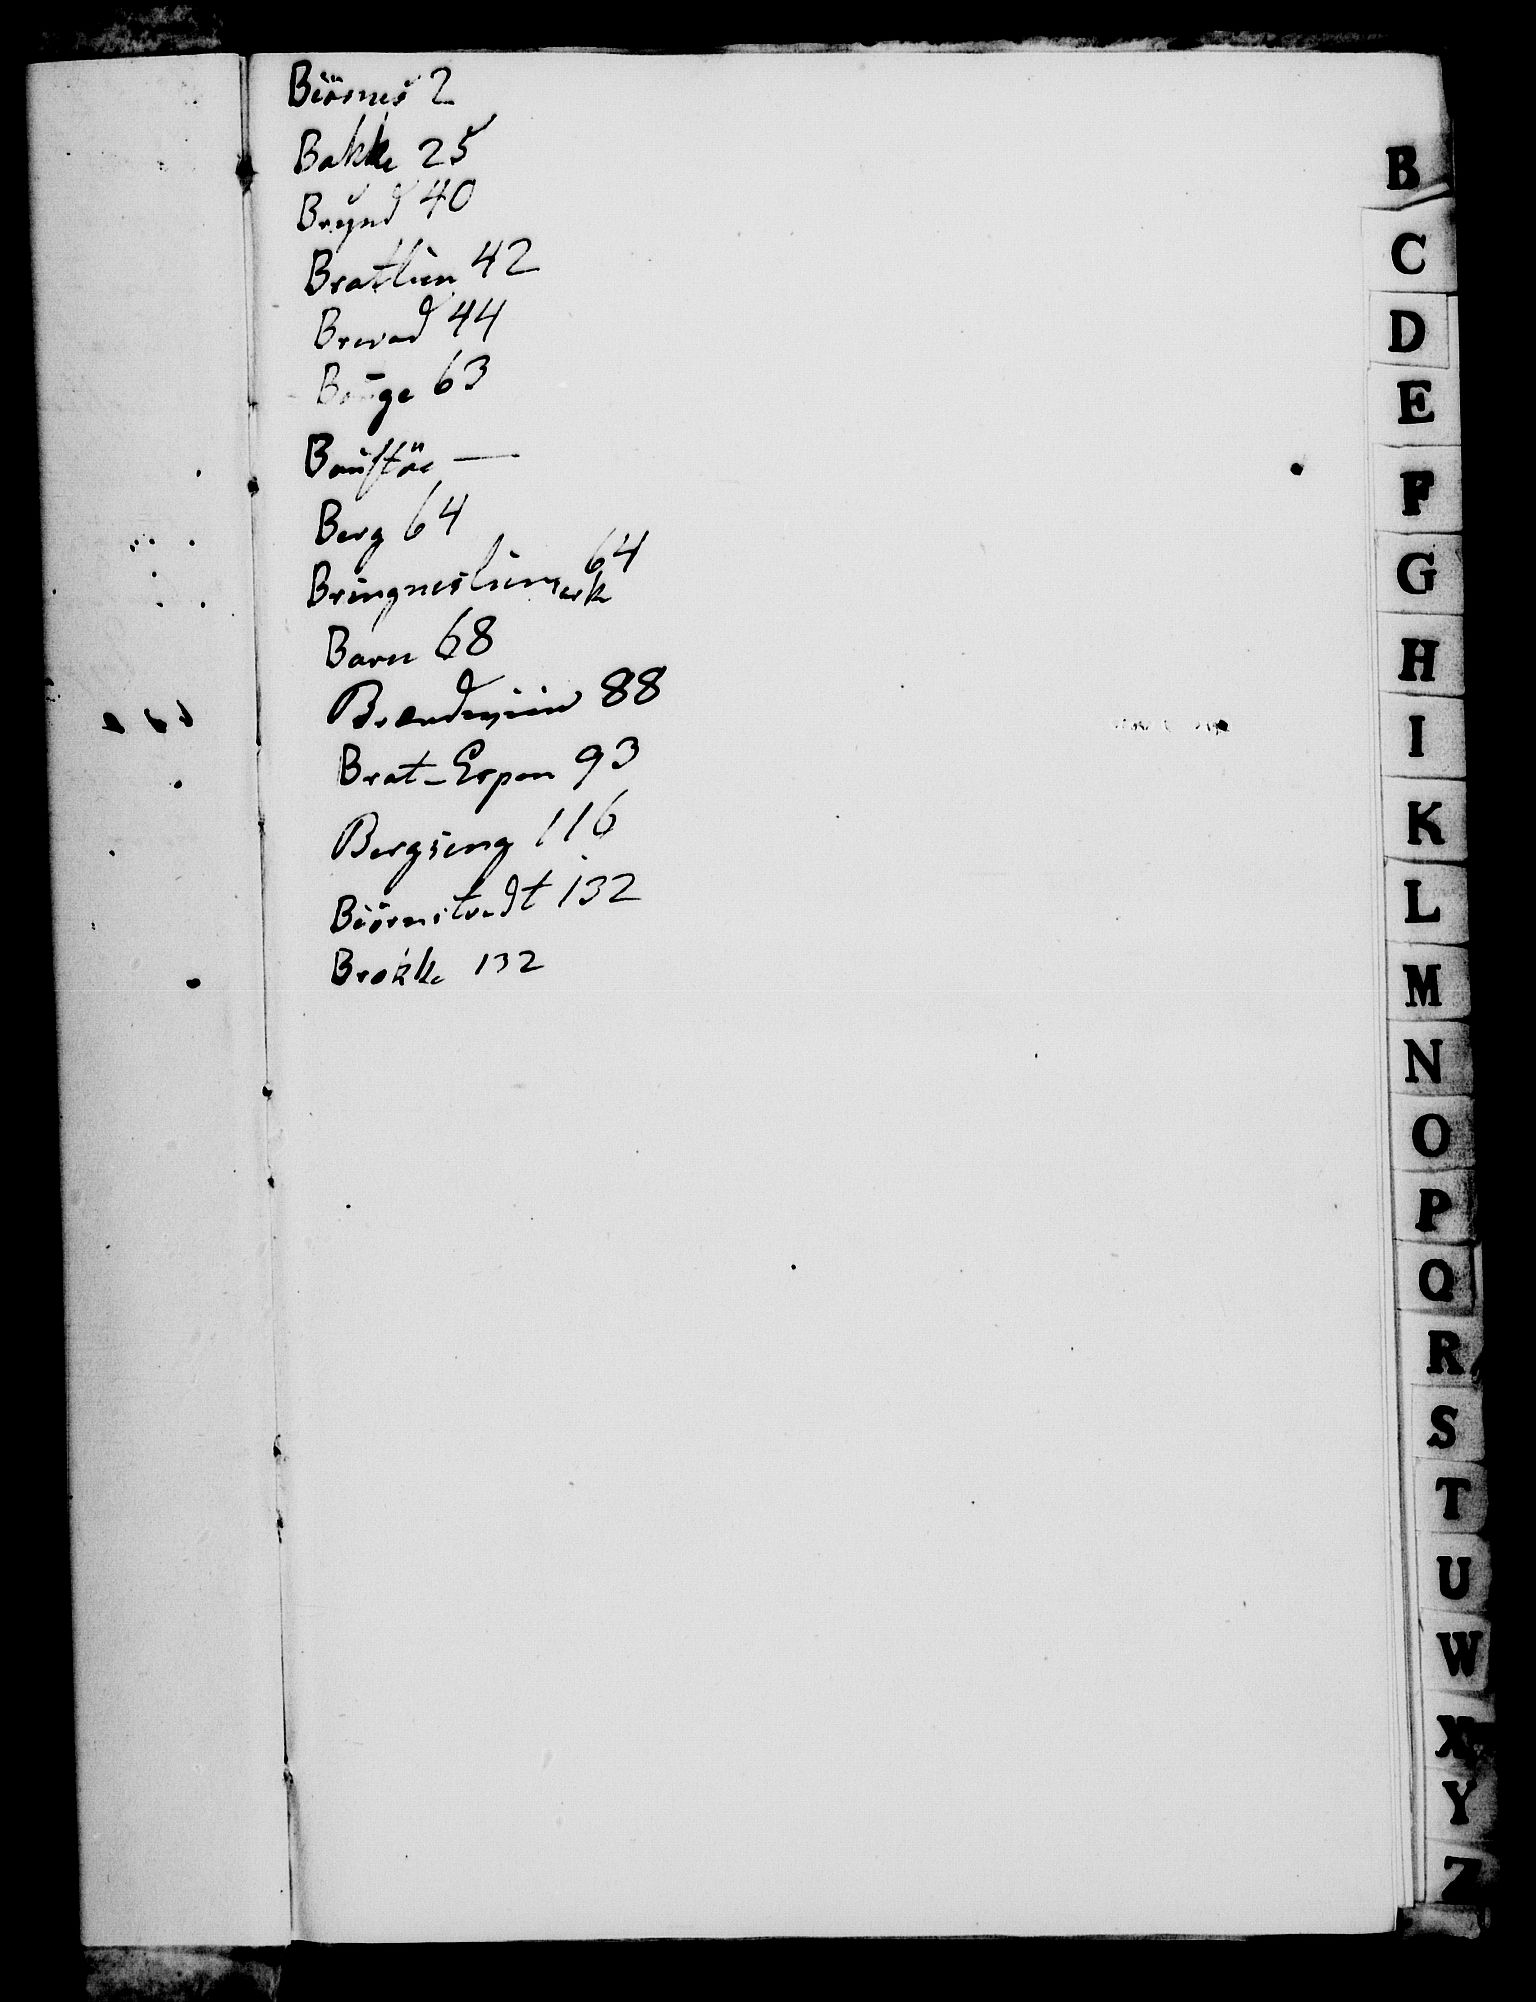 Biörnes 2
Bakke 25
Brynd 40
Bratlien 42
Brevad 44
Bauge 63
Baustöe —
Berg 64
Bringneslienserk 64
Barn 68
Brændeviin 88
Brat-Espen 93
Bergseng 116
Biörnstredt 132
Brokke 132
B
C
D
E
F
G
H
I
K
L
M
N
O
P
Q
R
S
T
U
W
X
Y
Z